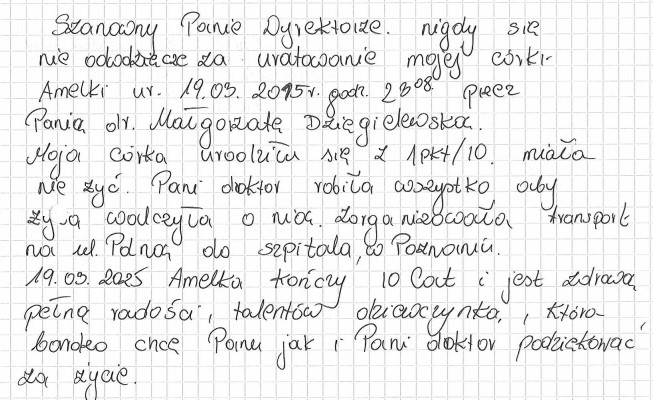 Szanowny Panie Dyrektorze. nigdy się
nie odwdzięcze za uratowanie mojej córki-
Amelki ur. 19.03.2015r. godz. 23⁰⁸. przez
Panią dr. Małgorzatę Dzięgielewska.
Moja córka urodziła się z 1pkt/10. miała
nie żyć. Pani doktor robiła wszystko aby
żyła walczyła o nią. Zorganizowała transport
na ul. Polną do szpitala, w Poznaniu.
19.03.2025 Amelka kończy 10 lat i jest zdrową
pełną radości, talentów dziewczynką, , która-
bardzo chcę Panu jak i Pani doktor podziękować
za życie.